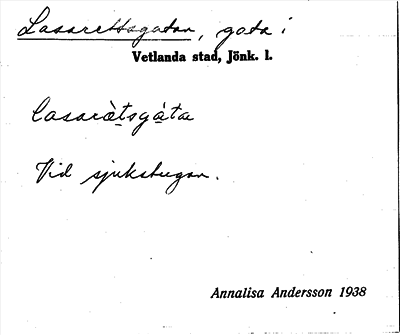 Lasarettsgatan, gata i
Vetlanda stad, Jönk. l.
lasarètsgàta
Vid sjukstugan.
Annalisa Andersson 1938